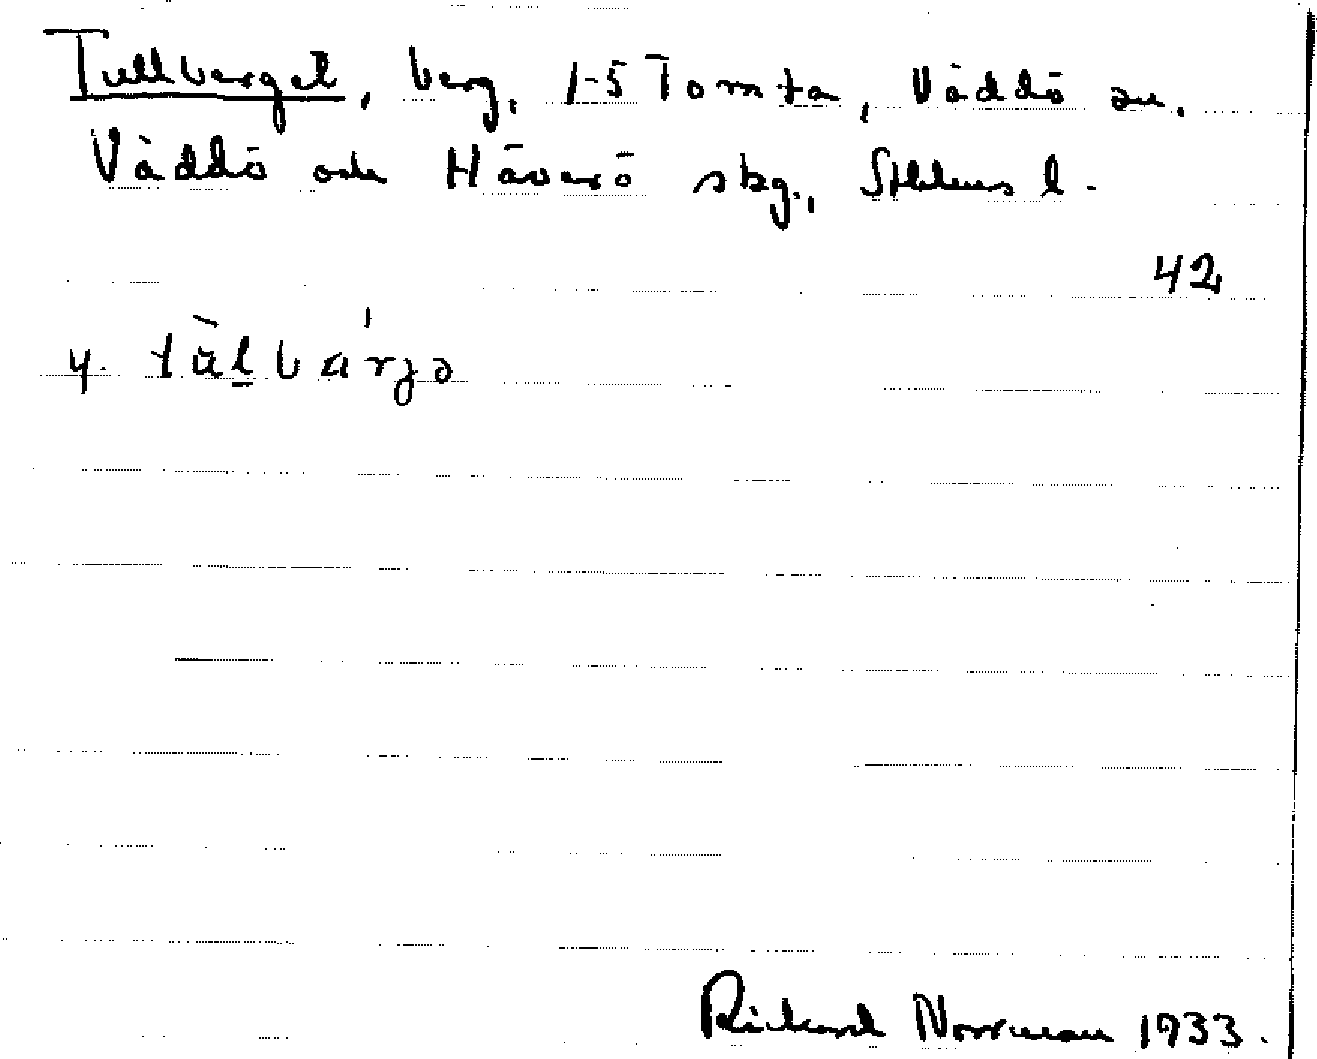 Tullberget, berg, 1-5 Tomta, Väddö sn.
Väddö och Häverö skg., Sthlms l.
42
4. tàlbárjə
Rickard Norrman 1933.